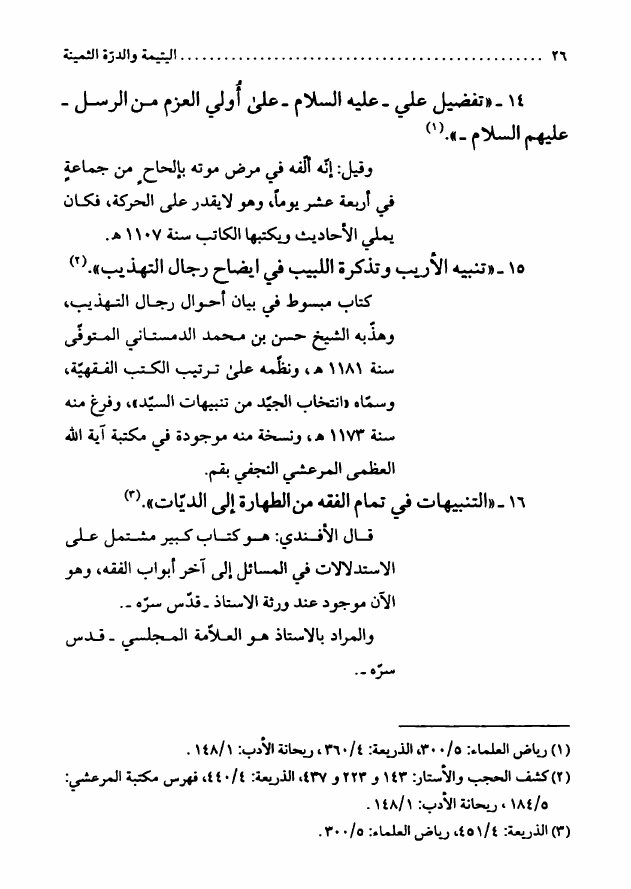 ٢٦ ................................................ اليتيمة والدرّة الثمينة
١٤ ـ «تفضيل علي ـ عليه السلام ـ علىٰ أُولي العزم مـن الرسـل ـ
عليهم السلام ـ».(١)
وقيل: إنّه ألّفه في مرض موته بإلحاح ٍ من جماعةٍ
في أربعة عشر يوماً، وهو لايقدر على الحركة، فكـان
يملي الأحاديث ويكتبها الكاتب سنة ١١٠٧ هـ.
١٥ ـ «تنبيه الأريب وتذكرة اللبيب في ايضاح رجال التهذيب».(٢)
كتاب مبسوط في بيان أحـوال رجـال التـهذيب،
وهذّبه الشيخ حسن بن محمد الدمستـاني المـتوفّى
سنة ١١٨١ هـ، ونظّمه علىٰ تـرتيب الكـتب الفـقهيّة،
وسمّاه «انتخاب الجيّد من تنبيهات السيّد»، وفرغ منه
سنة ١١٧٣ هـ، ونسخة منه موجودة في مكتبة آية الله
العظمى المرعشي النجفي بقم.
١٦ ـ «التنبيهات في تمام الفقه من الطهارة إلى الديّات».(٣)
قـال الأفـندي: هـو كتـاب كبير مشـتمل عـلى
الاستدلالات في المسائل إلى آخر أبواب الفقه، وهو
الآن موجود عند ورثة الاستاذ ـ قدّس سرّه ـ.
والمراد بالاستاذ هـو العـلاّمة المـجلسي ـ قـدس
سرّه ـ.
(١) رياض العلماء: ٣٠٠/٥، الذريعة: ٣٦٠/٤، ريحانة الأدب: ١٤٨/١.
(٢) كشف الحجب والأستار: ١٤٣ و ٢٢٣ و ٤٣٧، الذريعة: ٤٤٠/٤، فهرس مكتبة المرعشي:
١٨٤/٥، ريحانة الأدب: ١٤٨/١.
(٣) الذريعة: ٤٥١/٤، رياض العلماء: ٣٠٠/٥.